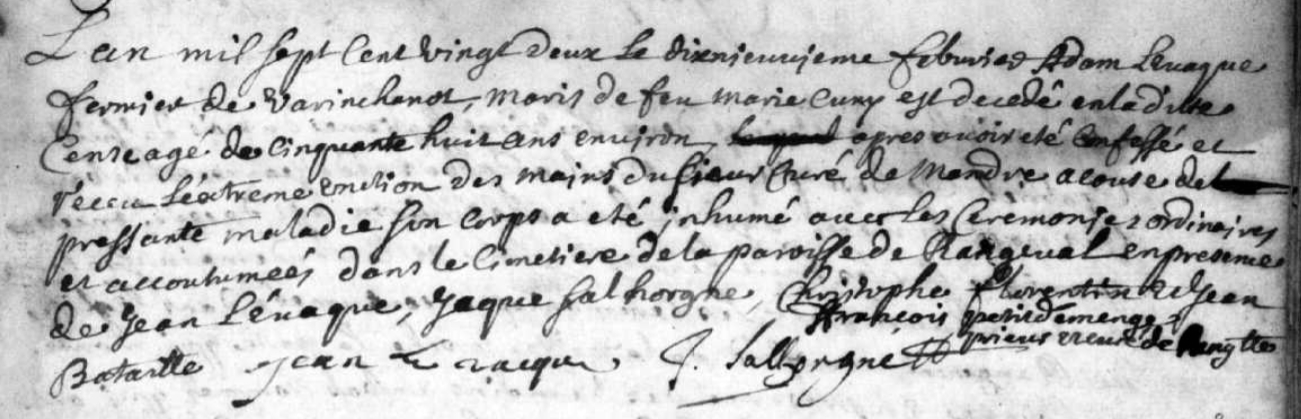 L'an mil sept Cent vingt deux le dixnieuvieme febvrier Adam Levaque
fermier de Varinchanot, maris de feu marie Cuny est decedé en la ditte
Cense agé de Cinquante huit ans environ, apres avoir eté Confessé et
réceu L'éxtreme onction des mains du sieur Curé de Mandre a couse de
pressante maladie son corps a eté inhumé avec les Cérémonies ordinaires
et accoutumeés dans le Cimetiere de la paroisse de Rangeval en presence
de Jean Lévaque, Jaque Salhorgne, Christophe florentin et Jean
Bataille Jean Le vaque J. Sallorgne françois petitdemenge
prieur et curé de